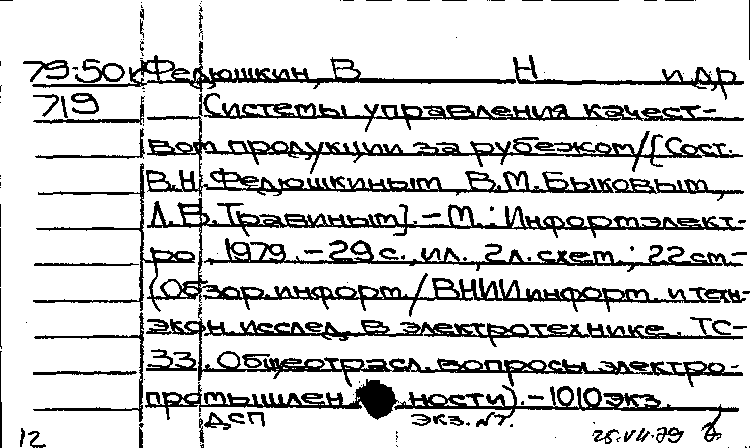 79:50к Федюшкин, В Н и др
719 Системы управления качест-
вом продукции за рубежом/[Сост.
В.Н. Федюшкиным, В.М. Быковым,
Л.В. Травиным].-М.: Информэлект-
ро, 1979.-29 с., ил., 2 л. схем.; 22 см.-
(Обзор. информ./ВНИИ информ. и техн-
экон. исслед. в электротехнике. ТС-
33. Общеотрасл. вопросы электро-
промышлен ности).-1010 экз.
ДСП экз. №т.
12 25.VII.79